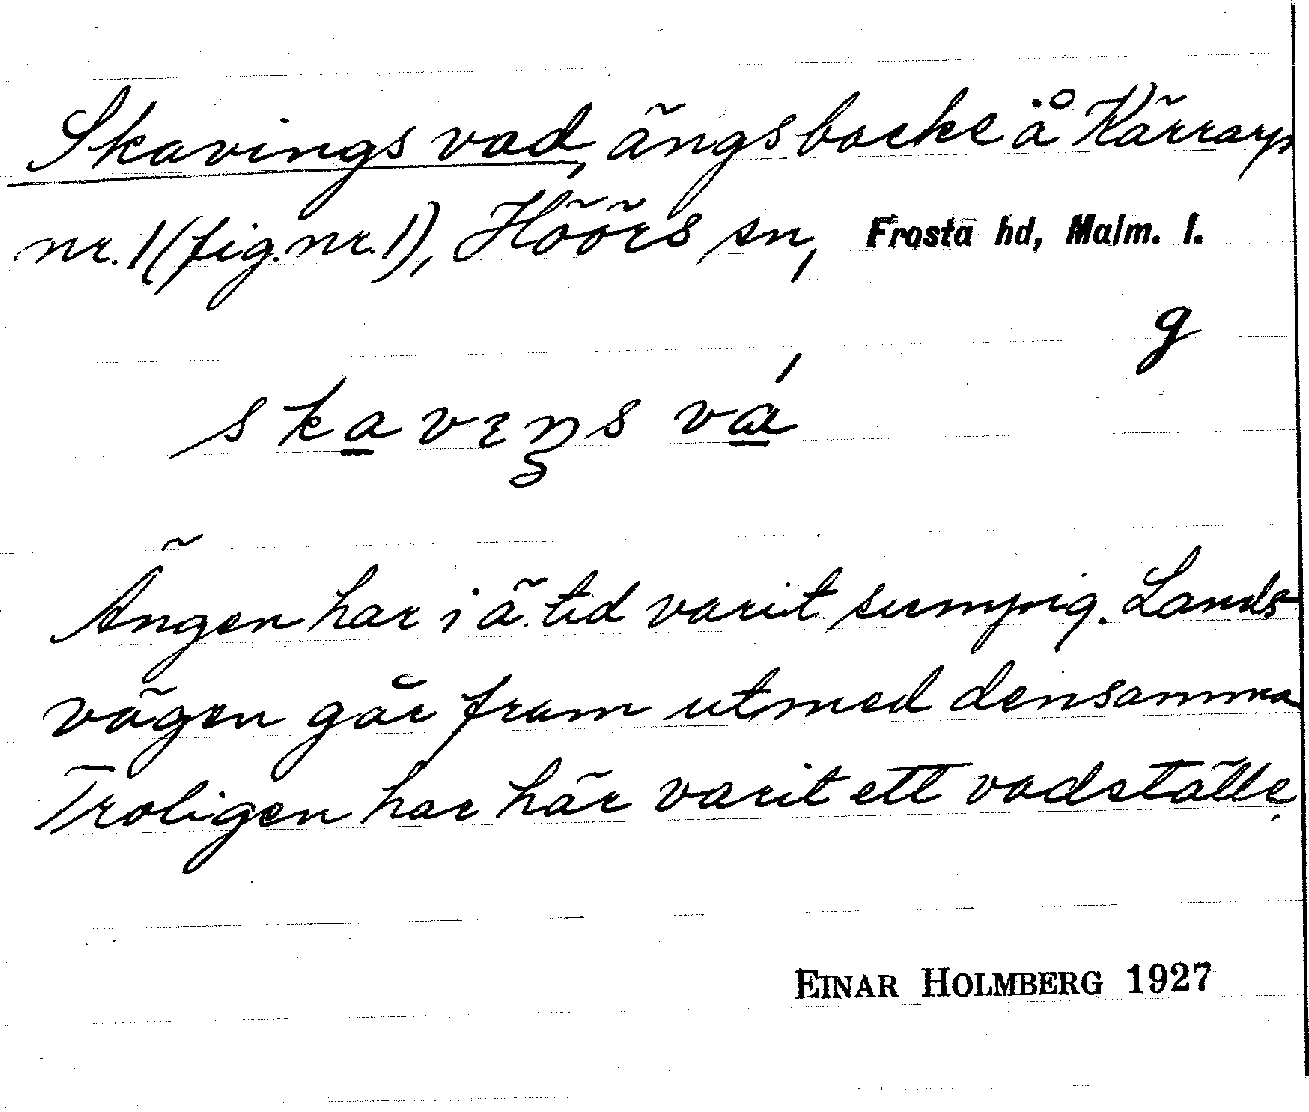 Skavings vad, ängsbacke å Kärrarp
nr. 1 (fig. nr. 1), Höörs sn, Frosta hd, Malm. l.
g
skavɪŋs vá
Ängen har i ä. tid varit sumpig. Lands-
vägen går fram utmed densamma
Troligen har här varit ett vadställe.
EINAR HOLMBERG 1927